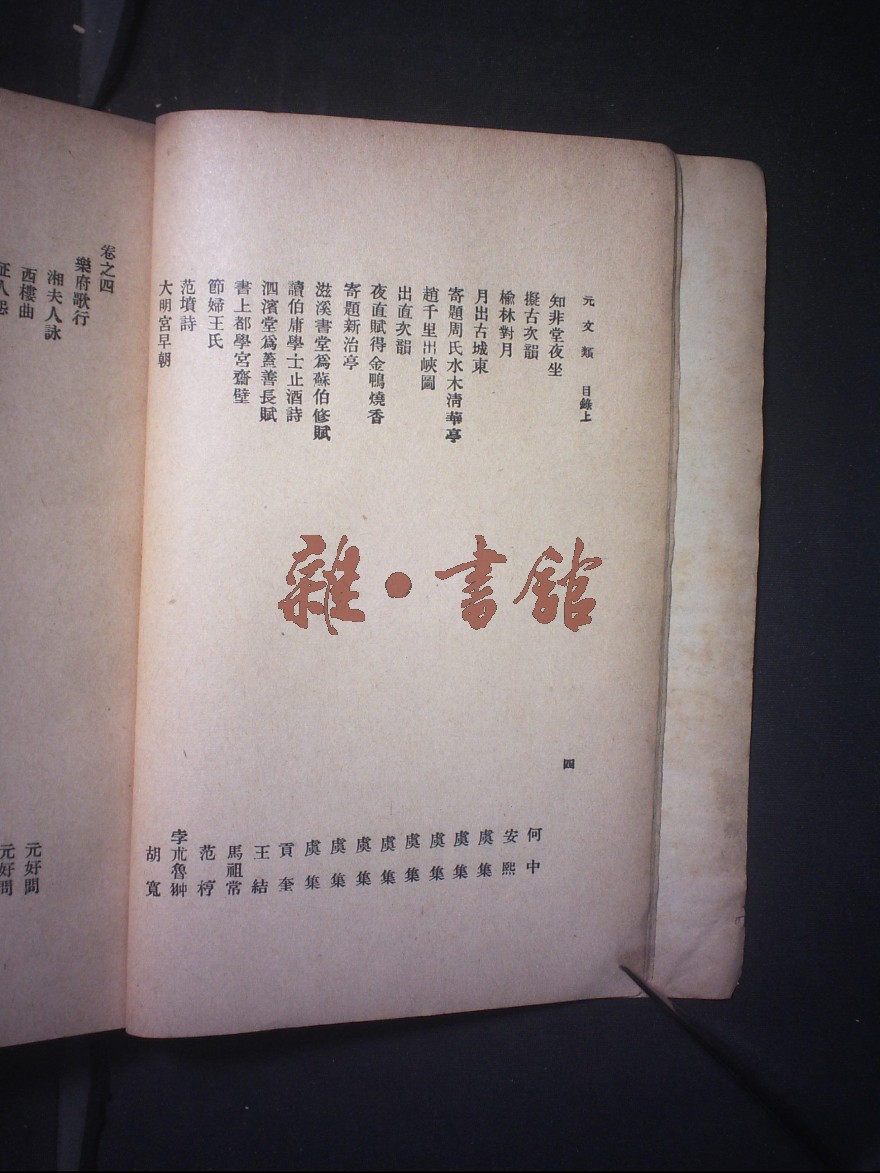 元文類 目錄上 四
知非堂夜坐 何中
擬古次韻 安熙
榆林對月 虞集
月出古城東 虞集
寄題周氏水木清華亭 虞集
趙千里出峽圖 虞集
出直次韻 虞集
夜直賦得金鴨燒香 虞集
寄題新治亭 虞集
滋溪書堂爲蘇伯修賦 虞集
讀伯庸學士止酒詩 貢奎
泗濱堂爲蓋善長賦 王結
書上都學宮齋壁 馬祖常
節婦王氏 范梈
范墳詩 孛朮魯翀
大明宮早朝 胡寬
卷之四
樂府歌行
湘夫人詠 元好問
西樓曲 元好問
雜·書館